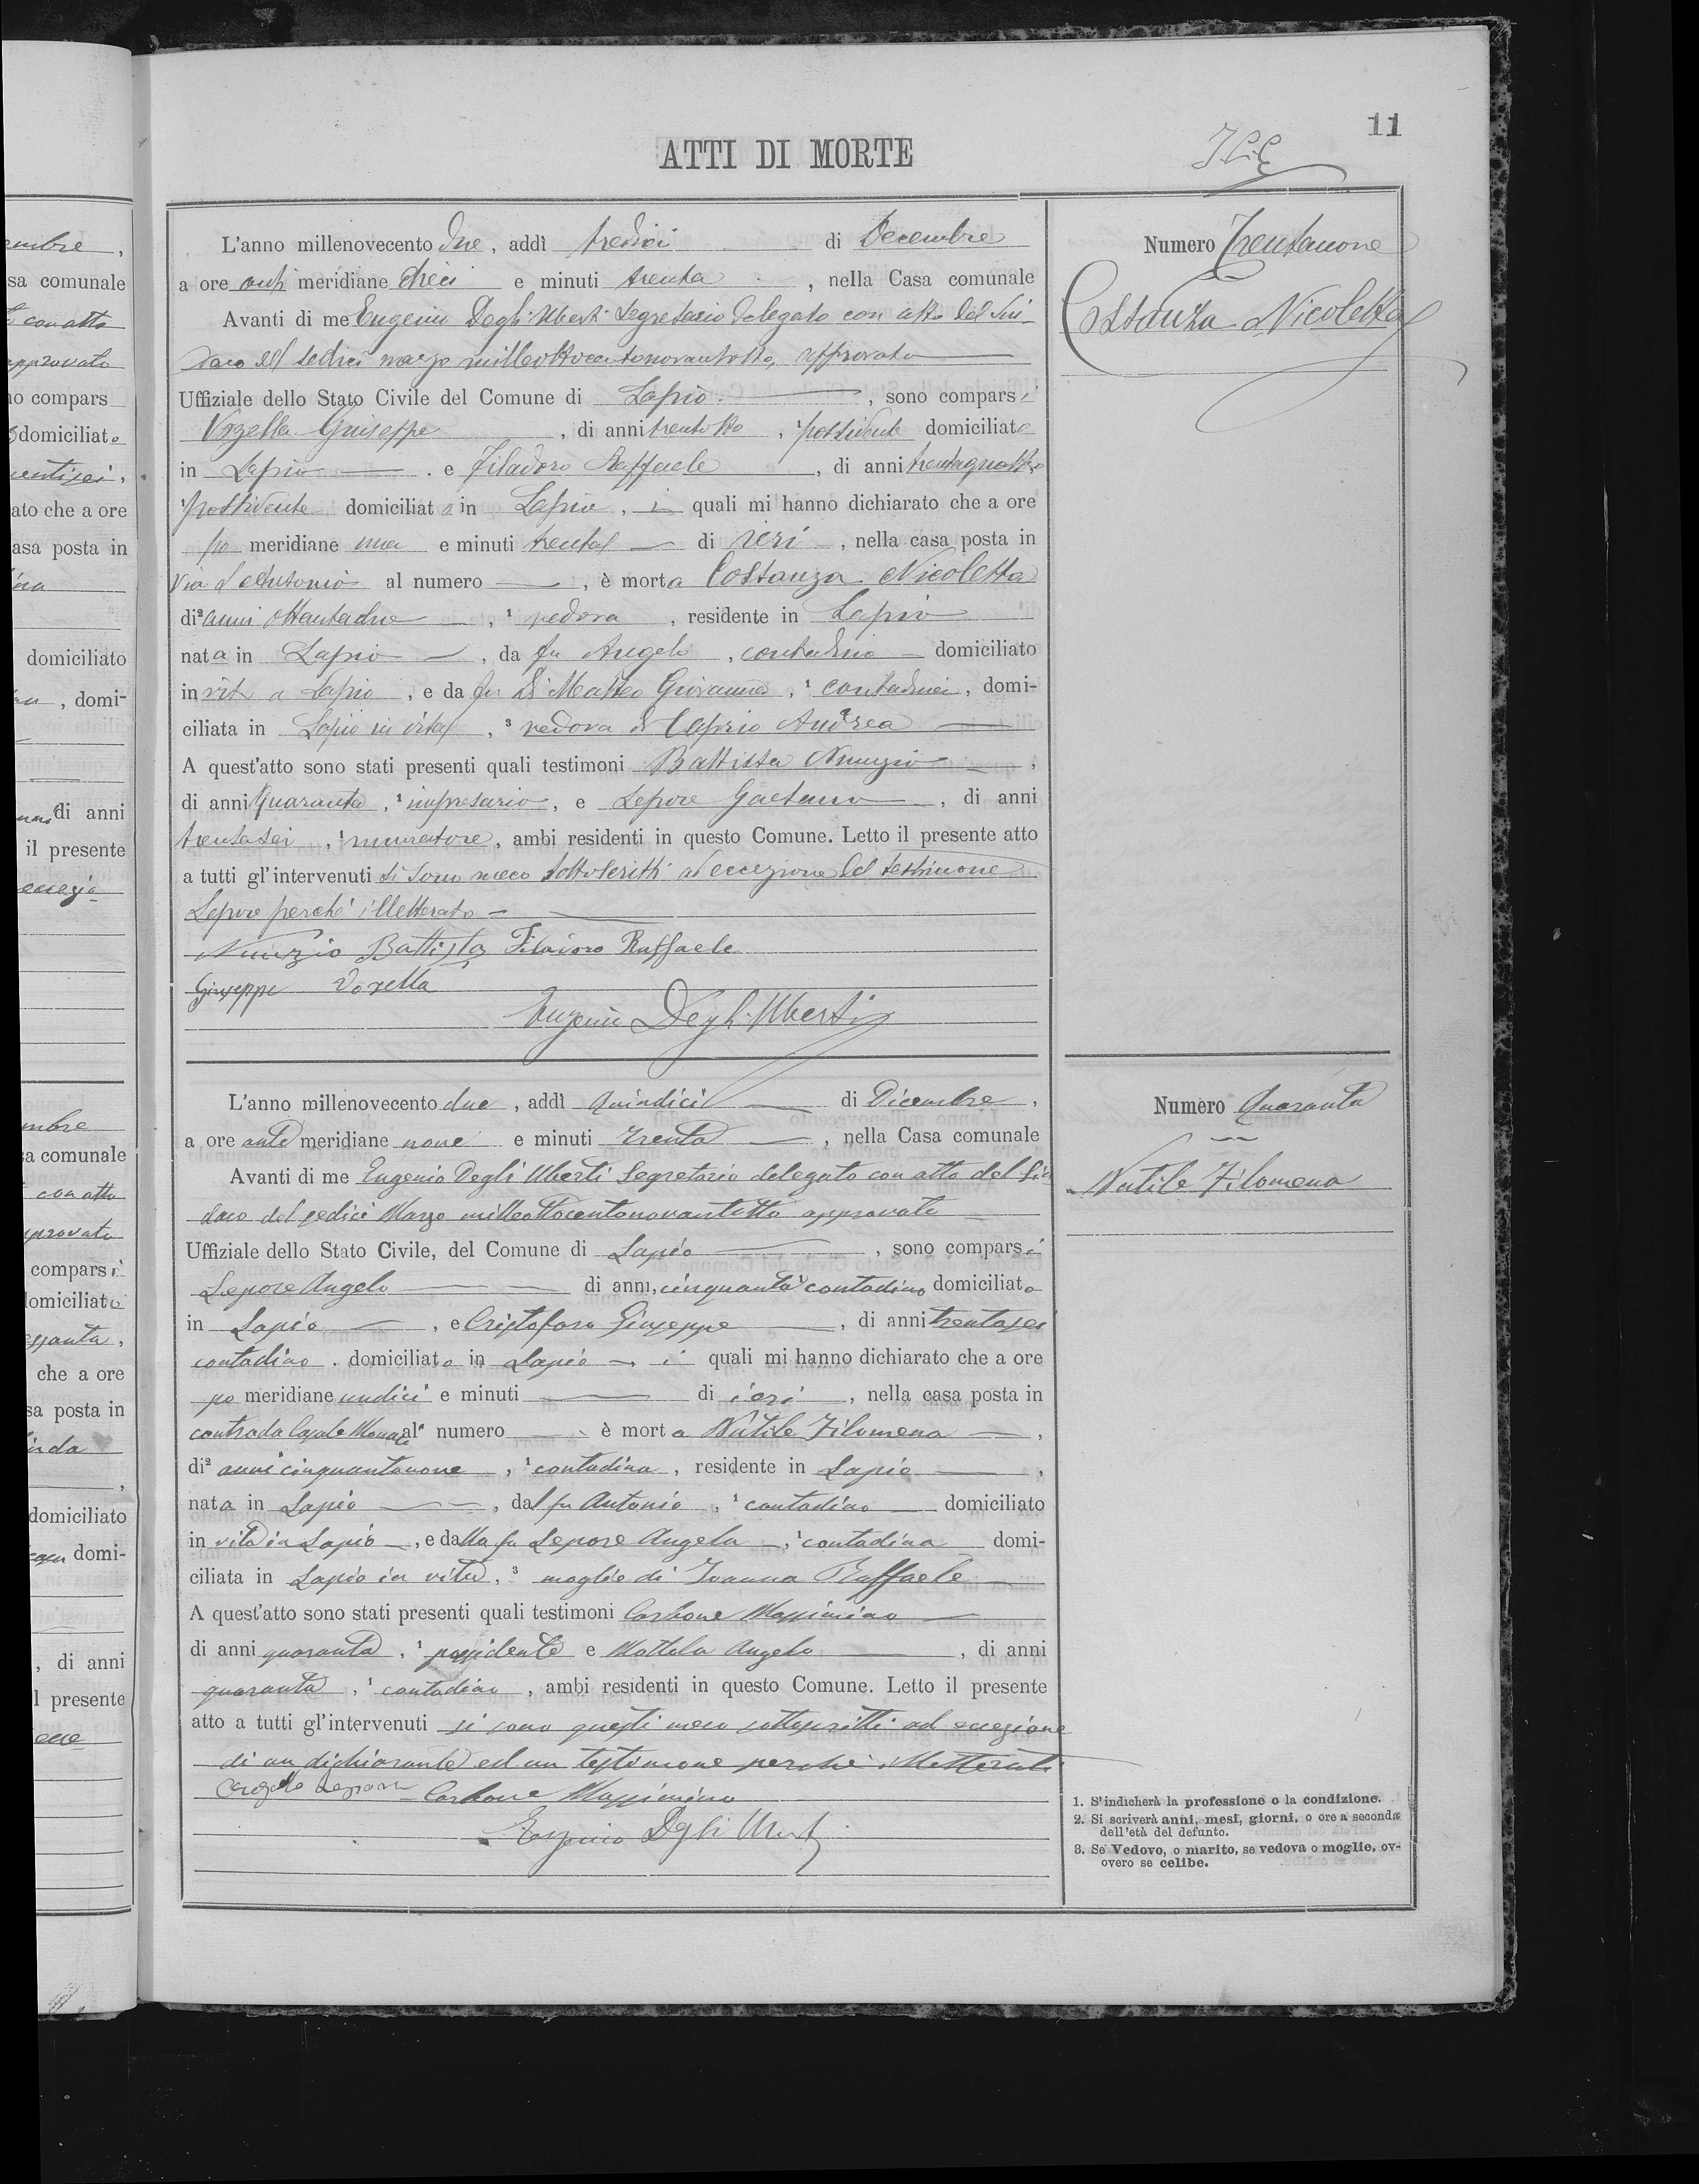 11
ATTI DI MORTE
Numero Trentanove
Costanza Nicoletta
L'anno millenovecento due, addì tredici di Decembre
a ore anti meridiane dieci e minuti trenta, nella Casa comunale
Avanti di me Eugenio Degli Uberti Segretario delegato con atto del Sin-
daco del sedici marzo milleottocentonovantotto, approvato
Uffiziale dello Stato Civile del Comune di Lapio, sono comparsi
Vozella Giuseppe, di anni trentotto, 1 possidente domiciliato
in Lapio e Filadoro Raffaele, di anni trentaquattro
1 possidente domiciliato in Lapio, i quali mi hanno dichiarato che a ore
po meridiane una e minuti trenta di ieri, nella casa posta in
Via S. Antonio al numero —, è morta Costanza Nicoletta
di 2 anni ottantadue, 1 vedova, residente in Lapio
nata in Lapio, da fu Angelo, contadino domiciliato
in vita a Lapio, e da fu Di Matteo Giovanna, 1 contadina, domi-
ciliata in Lapio in vita, 3 vedova di Caprio Andrea
A quest'atto sono stati presenti quali testimoni Battista Nunzio,
di anni quaranta, 1 impresario, e Lepore Gaetano, di anni
trentasei, 1 muratore, ambi residenti in questo Comune. Letto il presente atto
a tutti gl'intervenuti si sono meco sottoscritti ad eccezione del testimone
Lepore perché illetterato
Nunzio Battista Filadoro Raffaele
Giuseppe Vozella
Eugenio Degli Uberti
Numero Quaranta
Nutile Filomena
L'anno millenovecento due, addì quindici di Dicembre,
a ore ante meridiane nove e minuti trenta, nella Casa comunale
Avanti di me Eugenio Degli Uberti Segretario delegato con atto del Sin
daco del sedici Marzo milleottocentonovantotto approvato
Uffiziale dello Stato Civile, del Comune di Lapio, sono comparsi
Lepore Angelo di anni, cinquanta 1 contadino domiciliato
in Lapio, e Cristofaro Giuseppe, di anni trentasei
contadino. domiciliato in Lapio, i quali mi hanno dichiarato che a ore
po meridiane undici e minuti — di ieri, nella casa posta in
contrada Casale al numero — è morta Nutile Filomena,
di 2 anni cinquantanove, 1 contadina, residente in Lapio,
nata in Lapio, dal fu Antonio, 1 contadino domiciliato
in vita in Lapio, e dalla fu Lepore Angela, 1 contadina domi-
ciliata in Lapio in vita, 3 moglie di Ioanna Raffaele
A quest'atto sono stati presenti quali testimoni Carbone Massimino
di anni quaranta, 1 possidente e Mottola Angelo, di anni
quaranta, 1 contadino, ambi residenti in questo Comune. Letto il presente
atto a tutti gl'intervenuti si sono questi meco sottoscritti ad eccezione
di un dichiarante ed un testimone perché illetterati
Angelo Lepore Carbone Massimino
Eugenio Degli Uberti
1. S'indicherà la professione o la condizione.
2. Si scriverà anni, mesi, giorni, o ore a seconda
dell'età del defunto.
3. Se Vedovo, o marito, se vedova o moglie, ov-
overo se celibe.